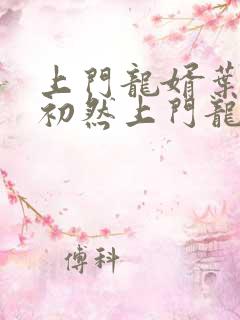 上門龍婿葉
初然上門龍
傅科